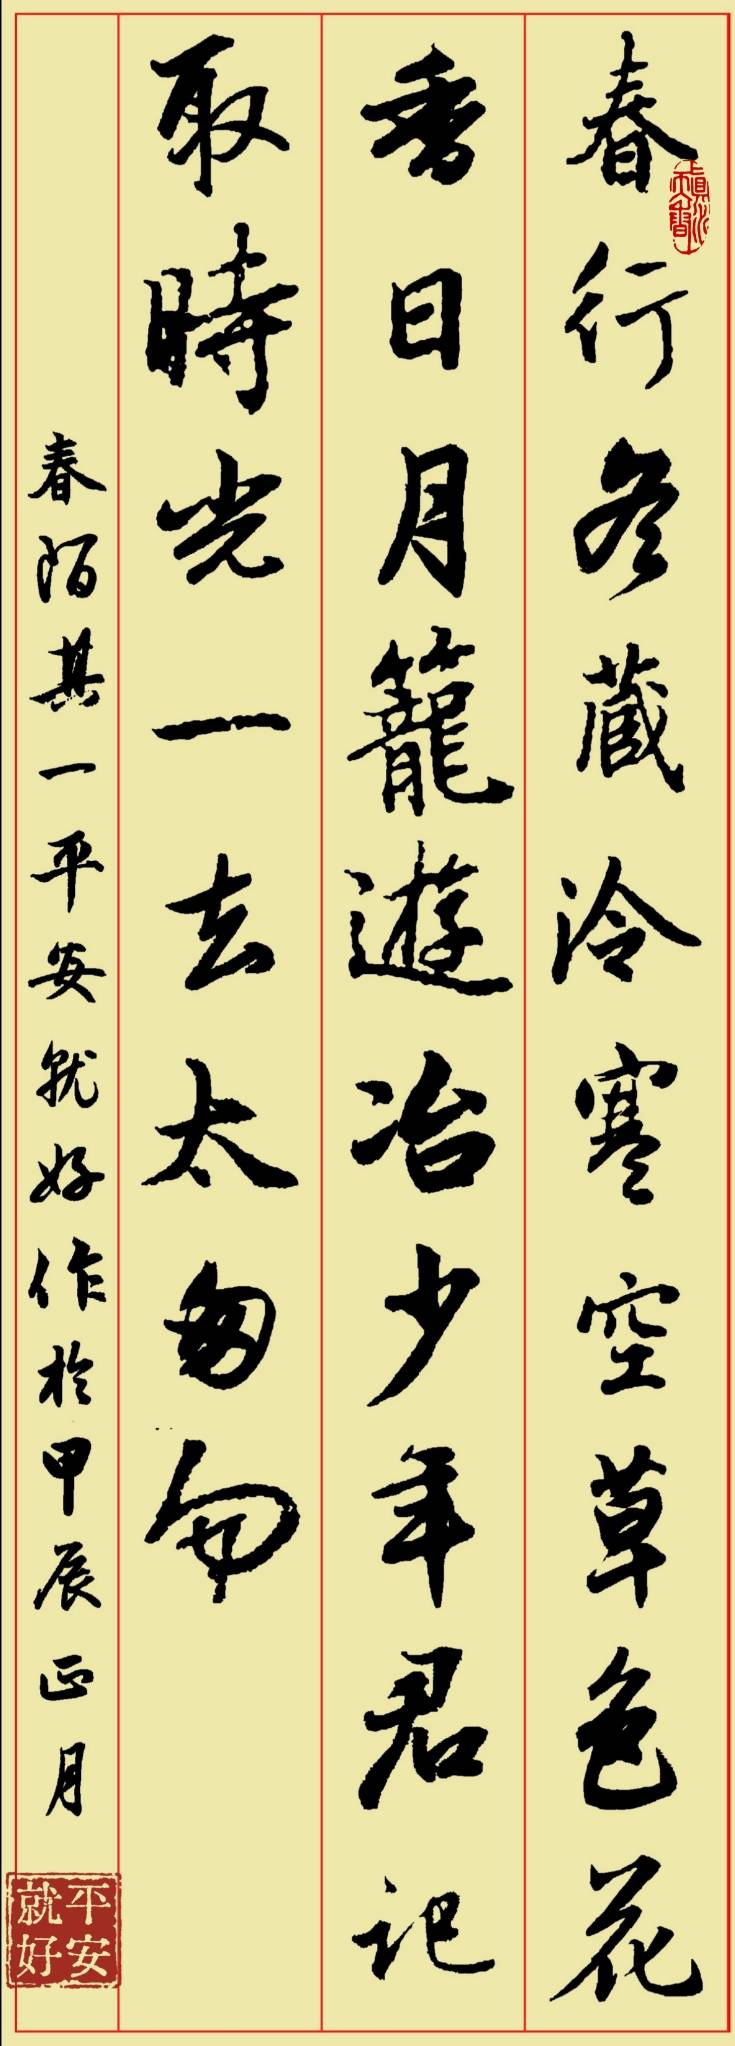 春行冬藏冷寒空草色花
香日月籠遊冶少年君記
取時光一去太匆匆
春陌其一平安就好作於甲辰正月
平安
就好